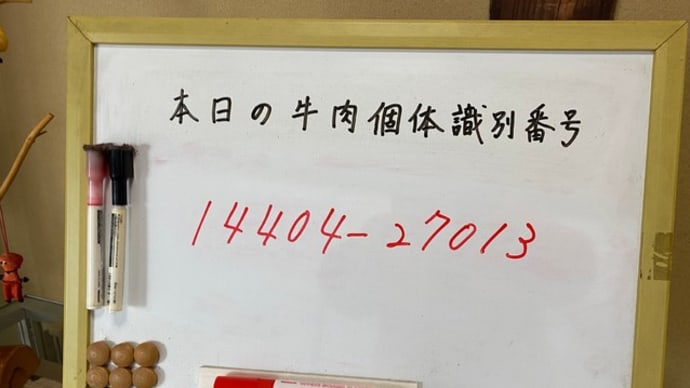 本日の牛肉個体識別番号
14404-27013